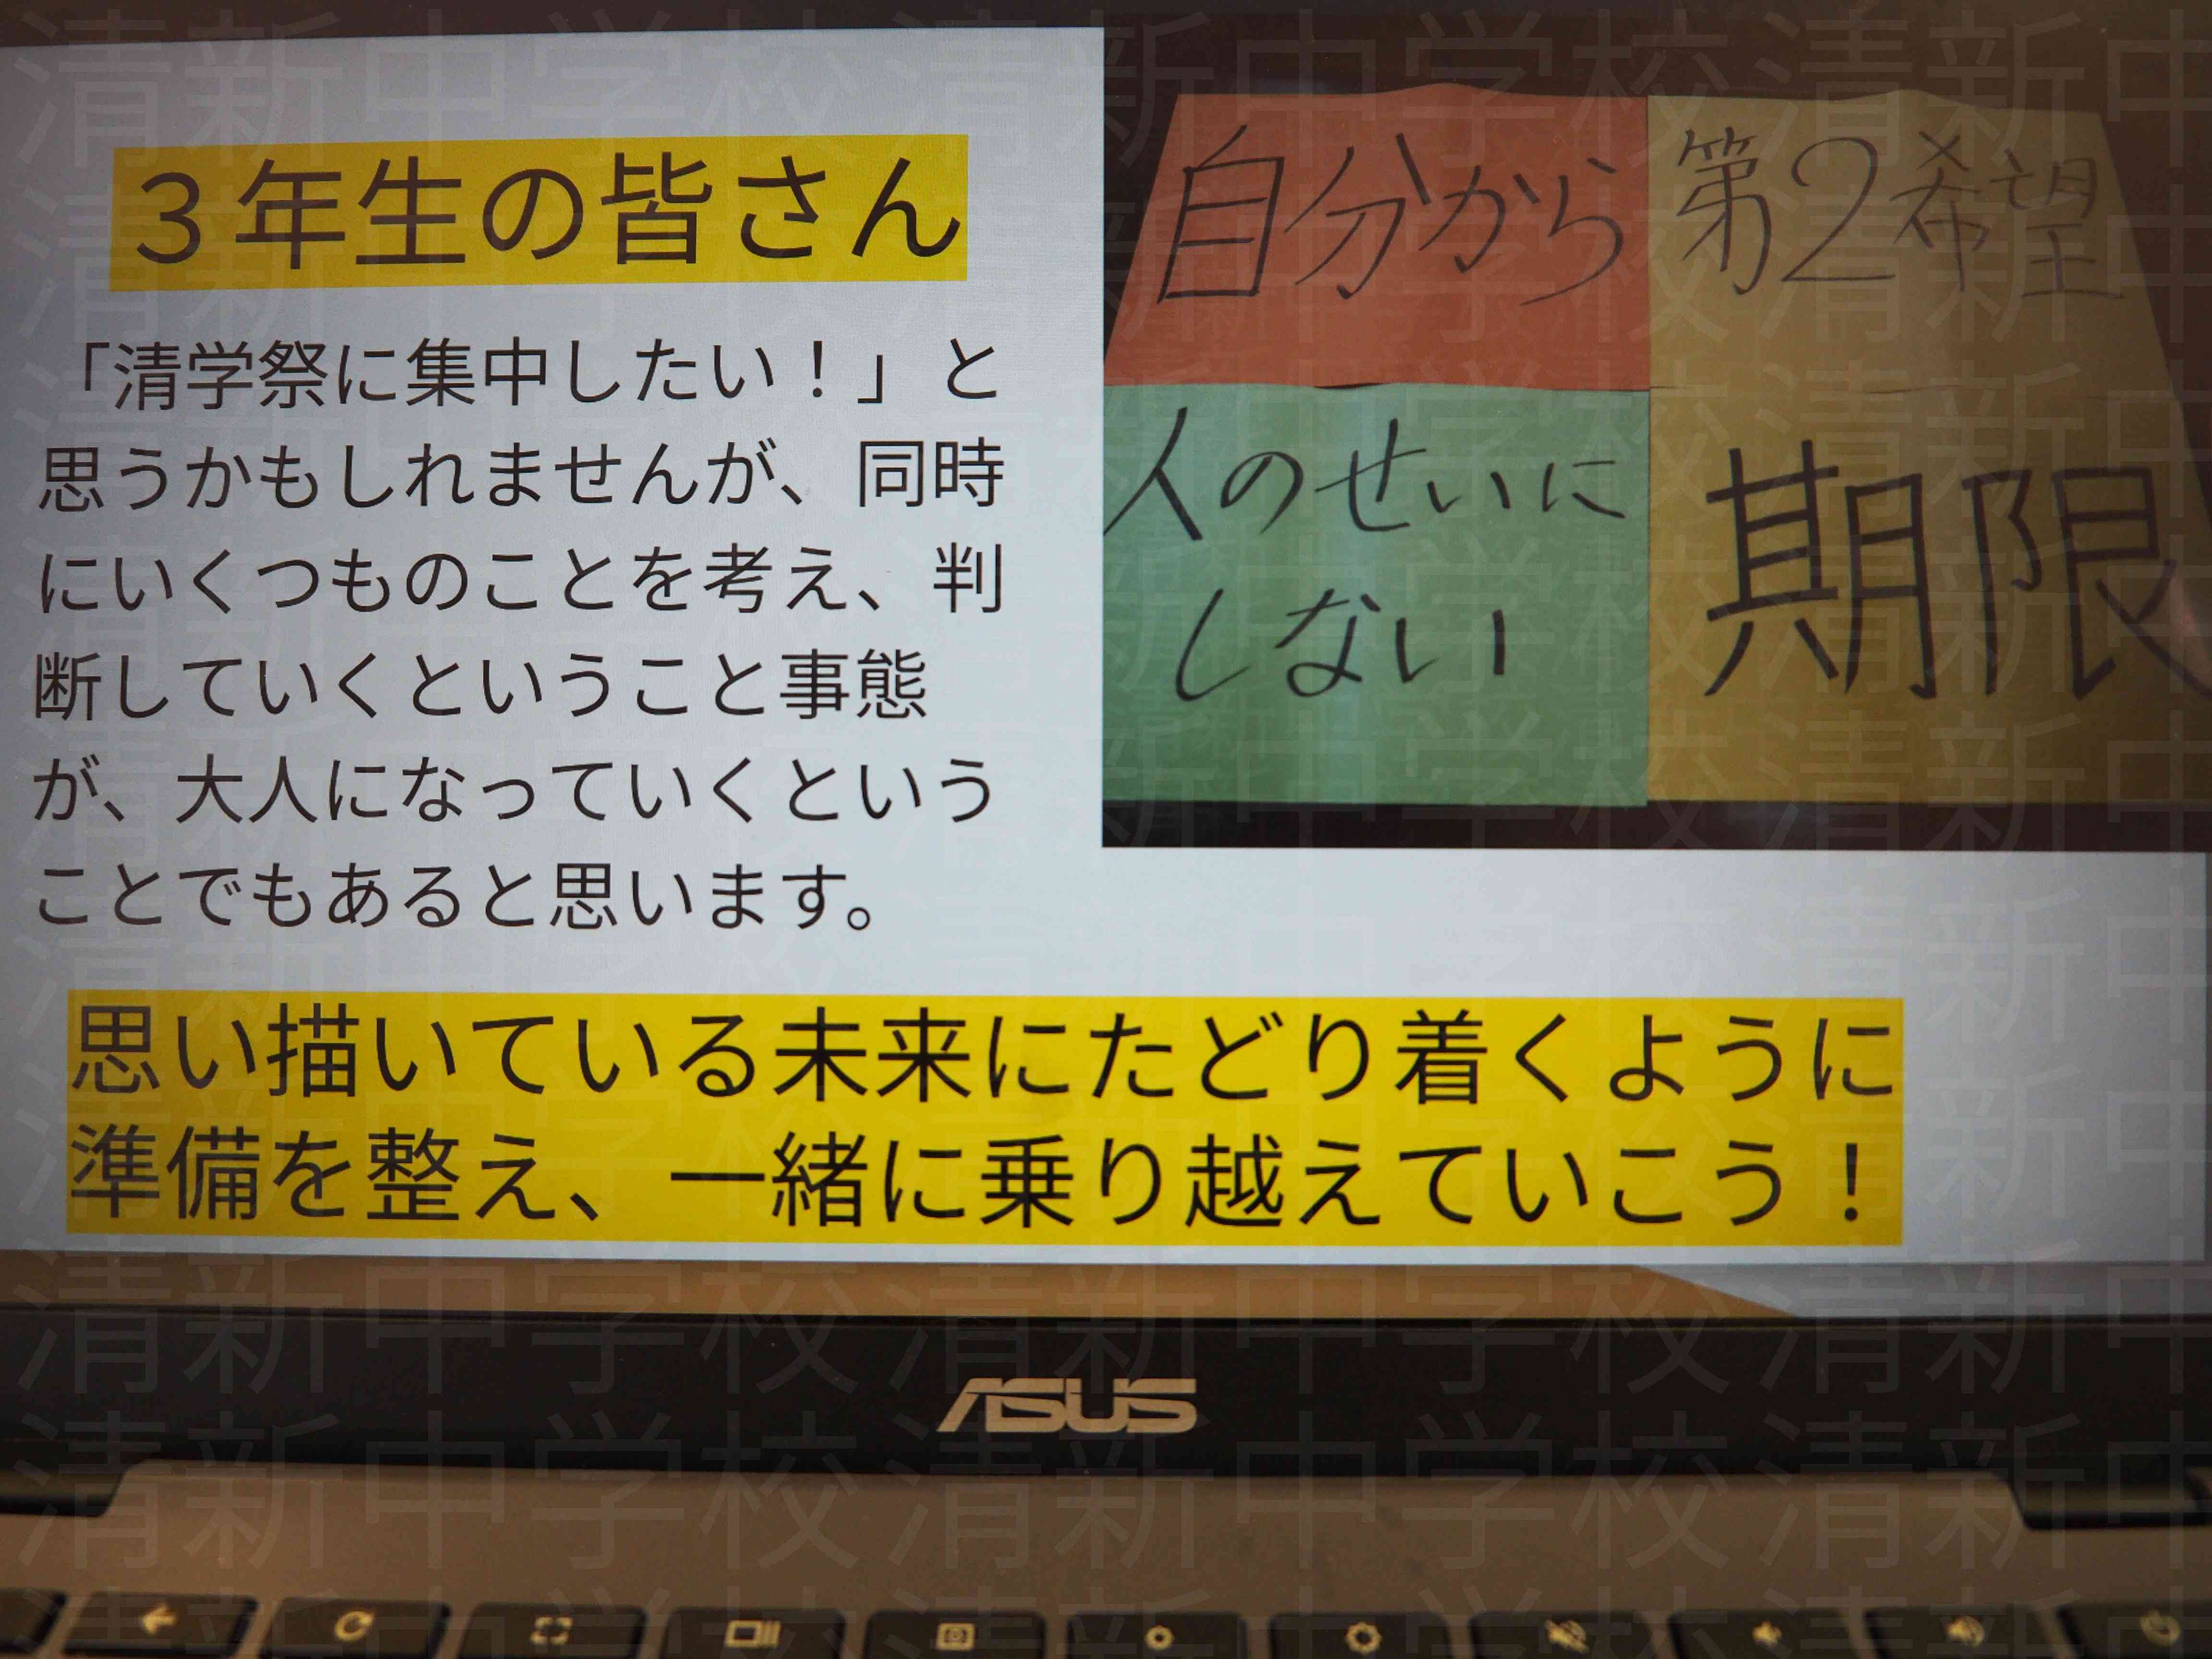 ３年生の皆さん
「清学祭に集中したい！」と
思うかもしれませんが、同時
にいくつものことを考え、判
断していくということ事態
が、大人になっていくという
ことでもあると思います。
自分から
第2希望
人のせいに
しない
期限
思い描いている未来にたどり着くように
準備を整え、一緒に乗り越えていこう！
ASUS
清新中学校